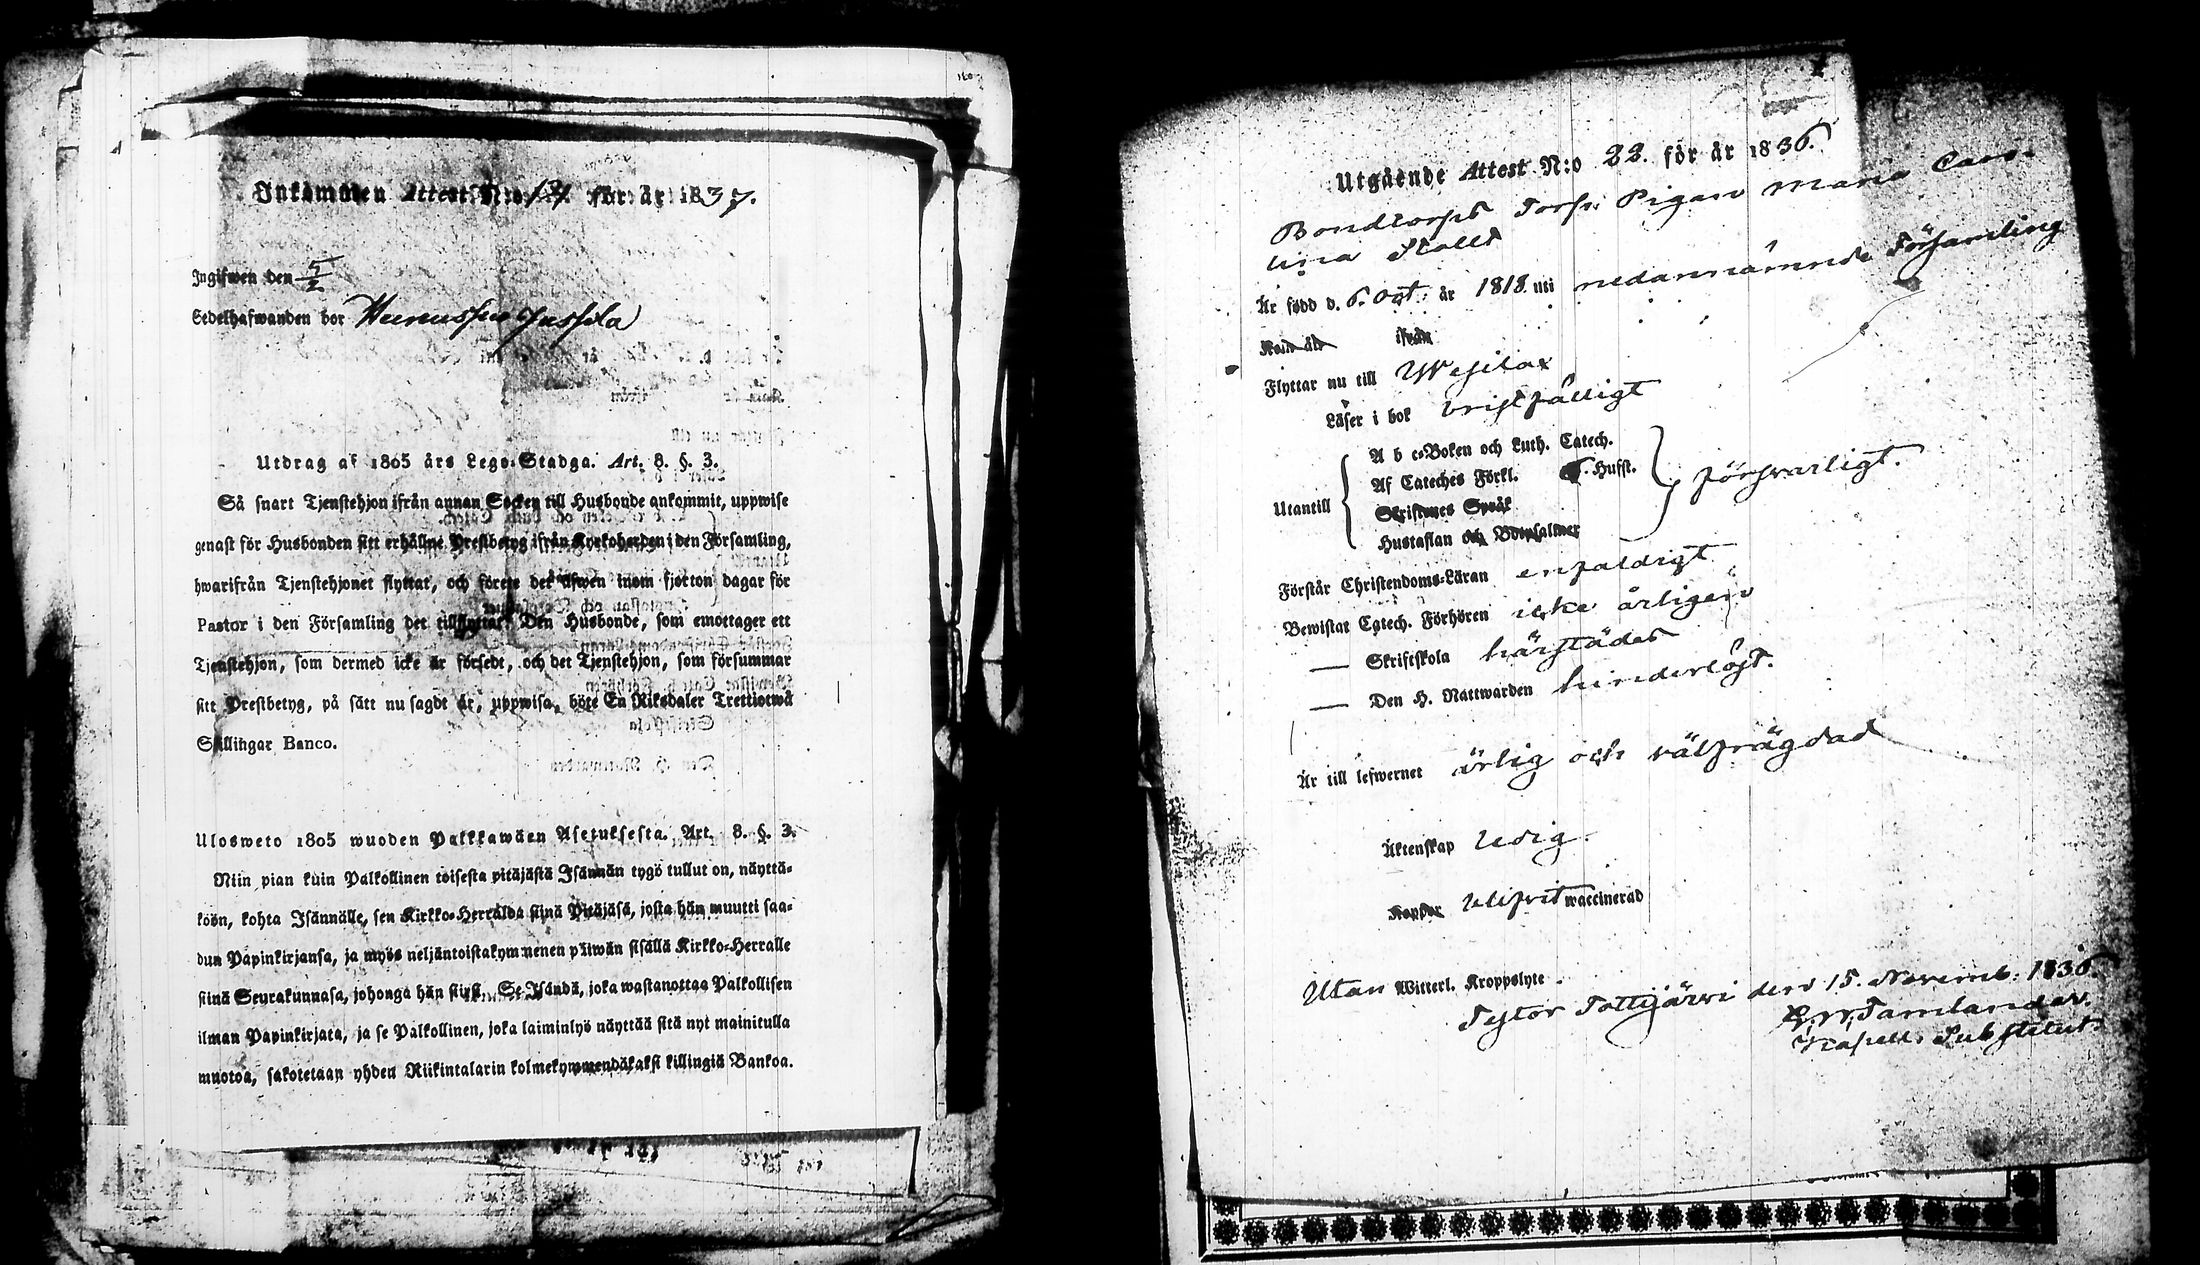 Inkommen Attest N:o 121 för år 1837.
Ingifwen den 5/2
Sedelhafwanden bor Jussila
Utdrag af 1805 års Lego-Stadga. Art. 8. §. 3.
Så snart Tjenstehjon ifrån annan Socken till Husbonde ankommit, uppwise
genast för Husbonden sitt erhållne Prestbetyg ifrån Kyrkoherden i den Församling,
hwarifrån Tjenstehjonet flyttat, och förete det äfwen inom fjorton dagar för
Pastor i den Församling det tillflyttat. Den Husbonde, som emottager ett
Tjenstehjon, som dermed icke är försedt, och det Tjenstehjon, som försummar
sitt Prestbetyg, på sätt nu sagdt är, uppwisa, böte En Riksdaler Trettiotwå
Skillingar Banco.
Ulosweto 1805 wuoden Palkkawäen Asetuksesta. Art. 8. §. 3.
Niin pian kuin Palkollinen toisesta pitäjästä Isännän tygö tullut on, näyttä-
köön, kohta Isännälle, sen Kirkko-Herralda siinä Pitäjäsä, josta hän muutti saa-
dun Papinkirjansa, ja myös neljäntoistakymmenen päiwän sisällä Kirkko-Herralle
siinä Seurakunnasa, johonga hän siirsi. Se Isändä, joka wastanottaa Palkollisen
ilman Papinkirjata, ja se Palkollinen, joka laiminlyö näyttää sitä nyt mainitulla
muotoa, sakotetaan yhden Riikintalarin kolmekymmendäkaksi killingiä Bankoa.
Utgående Attest N:o 22. för år 1836.
Bondtorps Torp: Pigan Maria Caro-
lina Stolts
Är född d. 6. Oct. år 1818. uti nedannämnde Församling
Kom åhr ifrån
Flyttar nu till Wesilax
Läser i bok bristfälligt
A b c-Boken och Luth. Catech.
Af Cateches Förkl. 6. Hufst.
Utantill försvarligt.
Skriftenes Språk
Hustaflan och Botpsalmer
Förstår Christendoms-Läran enfaldigt
Bewistat Catech. Förhören icke årligen
— Skriftskola härstädes
— Den H. Nattwarden hinderlöst.
Är till lefwernet ärlig och välfrägdad
Äktenskap ledig.
Koppor utifrit waccinerad
Utan Witterl. Kroppslyte.
Tottijärvi den 15. Novemb: 1836.
Tamlander.
Kapell: Substitut